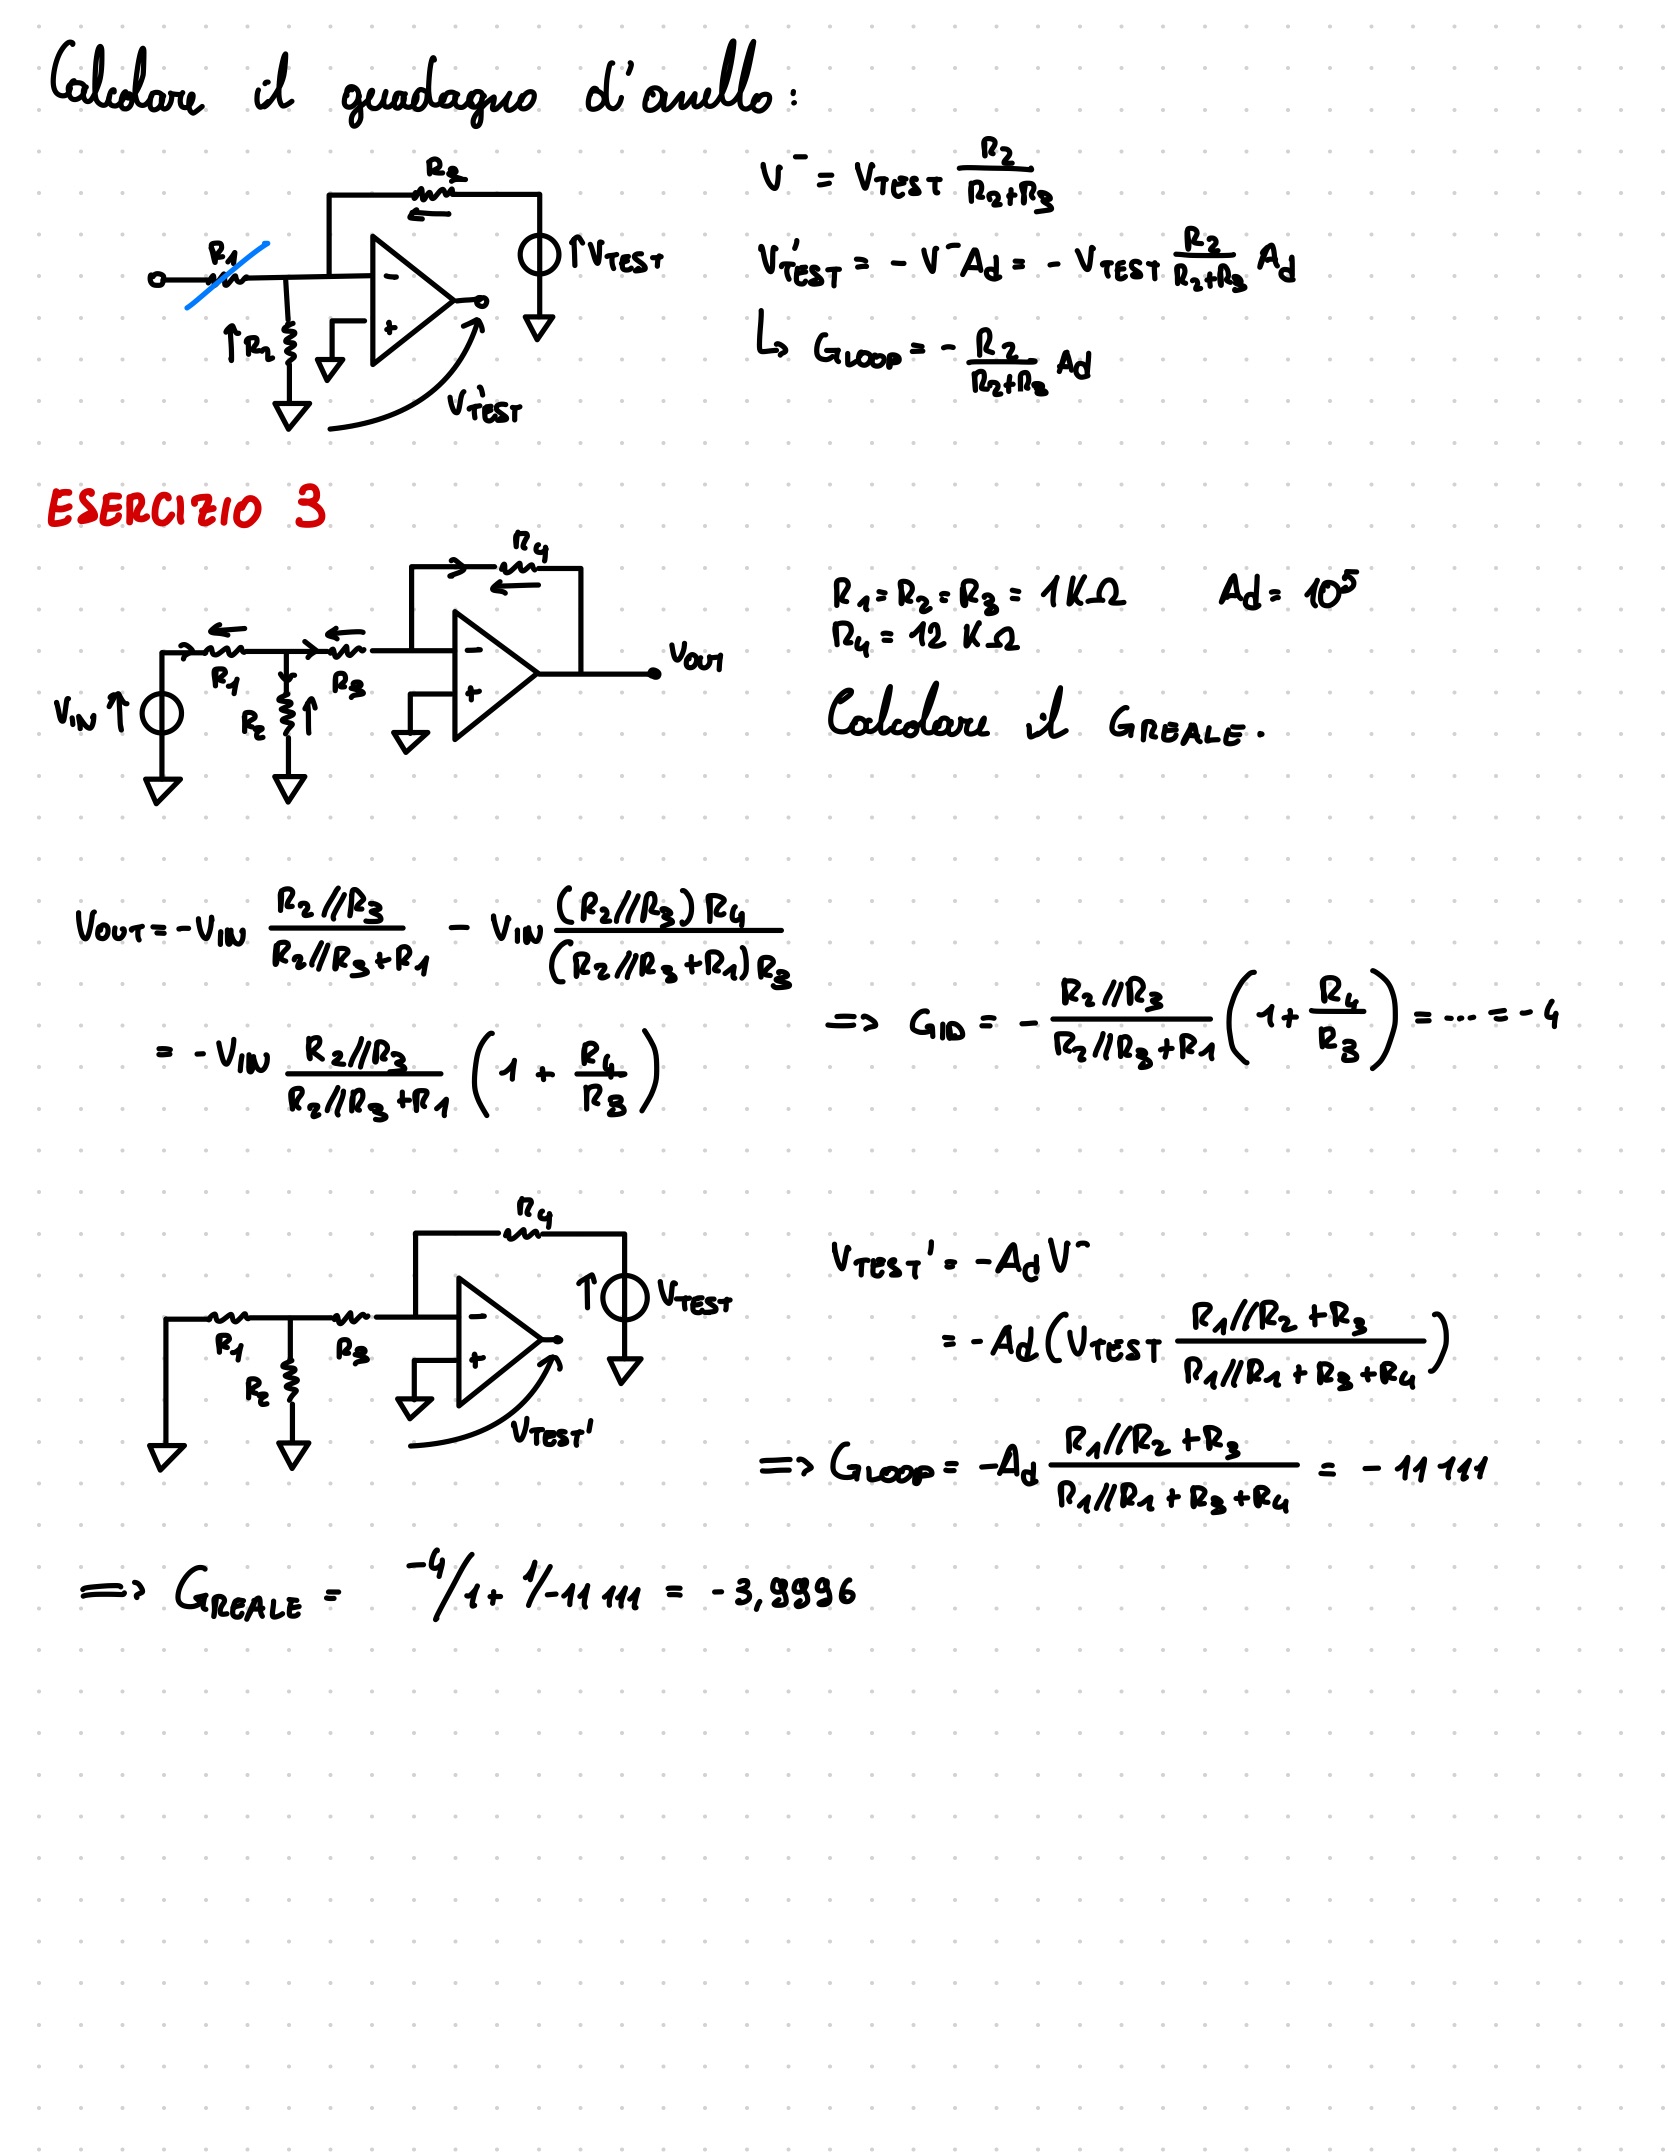 Calcolare il guadagno d'anello:
R3
R1
R2
VTEST
V'TEST
V⁻ = VTEST R2/(R2+R3)
V'TEST = - V⁻Ad = - VTEST R2/(R2+R3) Ad
↳ GLOOP = - R2/(R2+R3) Ad
ESERCIZIO 3
R4
R1
R3
R2
VIN
VOUT
R1 = R2 = R3 = 1KΩ Ad = 10⁵
R4 = 12 KΩ
Calcolare il GREALE.
VOUT = -VIN R2//R3/(R2//R3+R1) - VIN (R2//R3)R4/((R2//R3+R1)R3)
= - VIN R2//R3/(R2//R3+R1) (1 + R4/R3)
=> GID = - R2//R3/(R2//R3+R1) (1+ R4/R3) = ... = -4
R4
R1
R3
R2
VTEST
VTEST'
VTEST' = -Ad V⁻
= - Ad (VTEST (R1//R2+R3)/(R1//R1+R3+R4))
=> GLOOP = -Ad (R1//R2+R3)/(R1//R1+R3+R4) = - 11 111
=> GREALE = -4/1+ 1/-11 111 = -3,9996